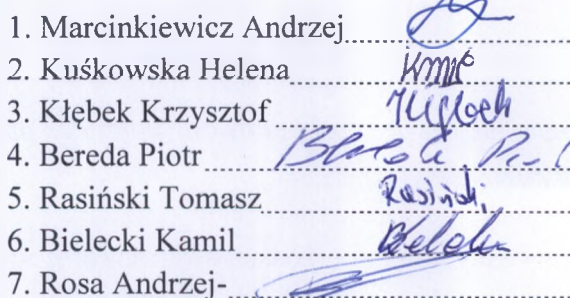 1. Marcinkiewicz Andrzej
2. Kuśkowska Helena
3. Kłębek Krzysztof
4. Bereda Piotr
5. Rasiński Tomasz Rasiński
6. Bielecki Kamil
7. Rosa Andrzej-